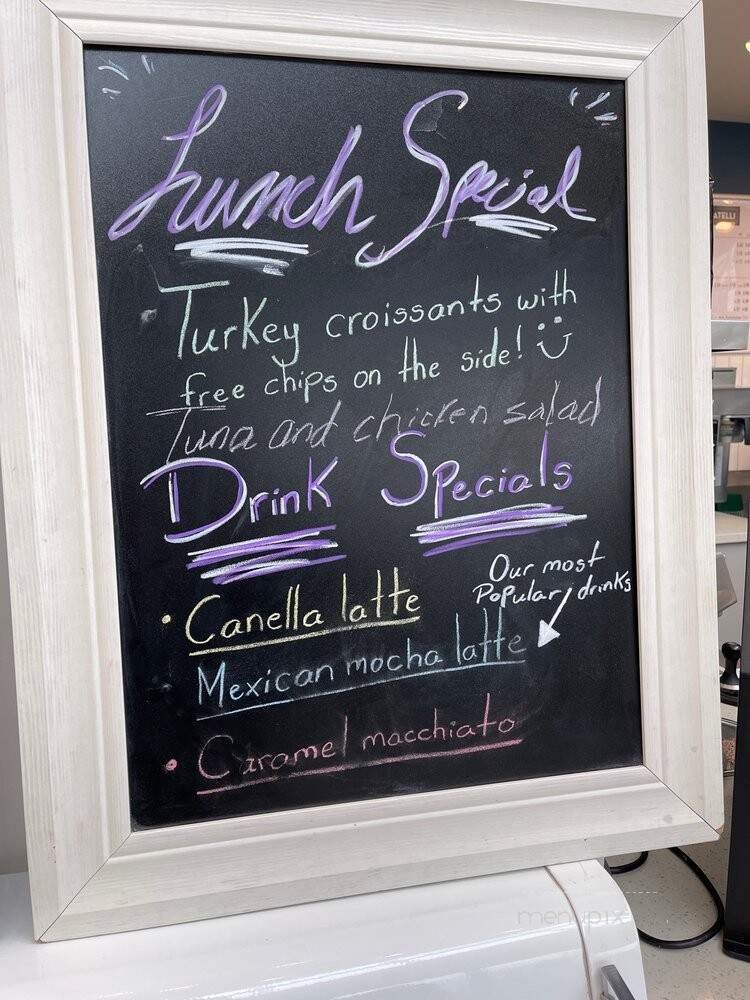 Lunch Special
Turkey croissants with
free chips on the side! :)
Tuna and chicken salad
Drink Specials
Our most
Popular drinks
• Canella latte
Mexican mocha latte
• Caramel macchiato
ATELLI
menupix